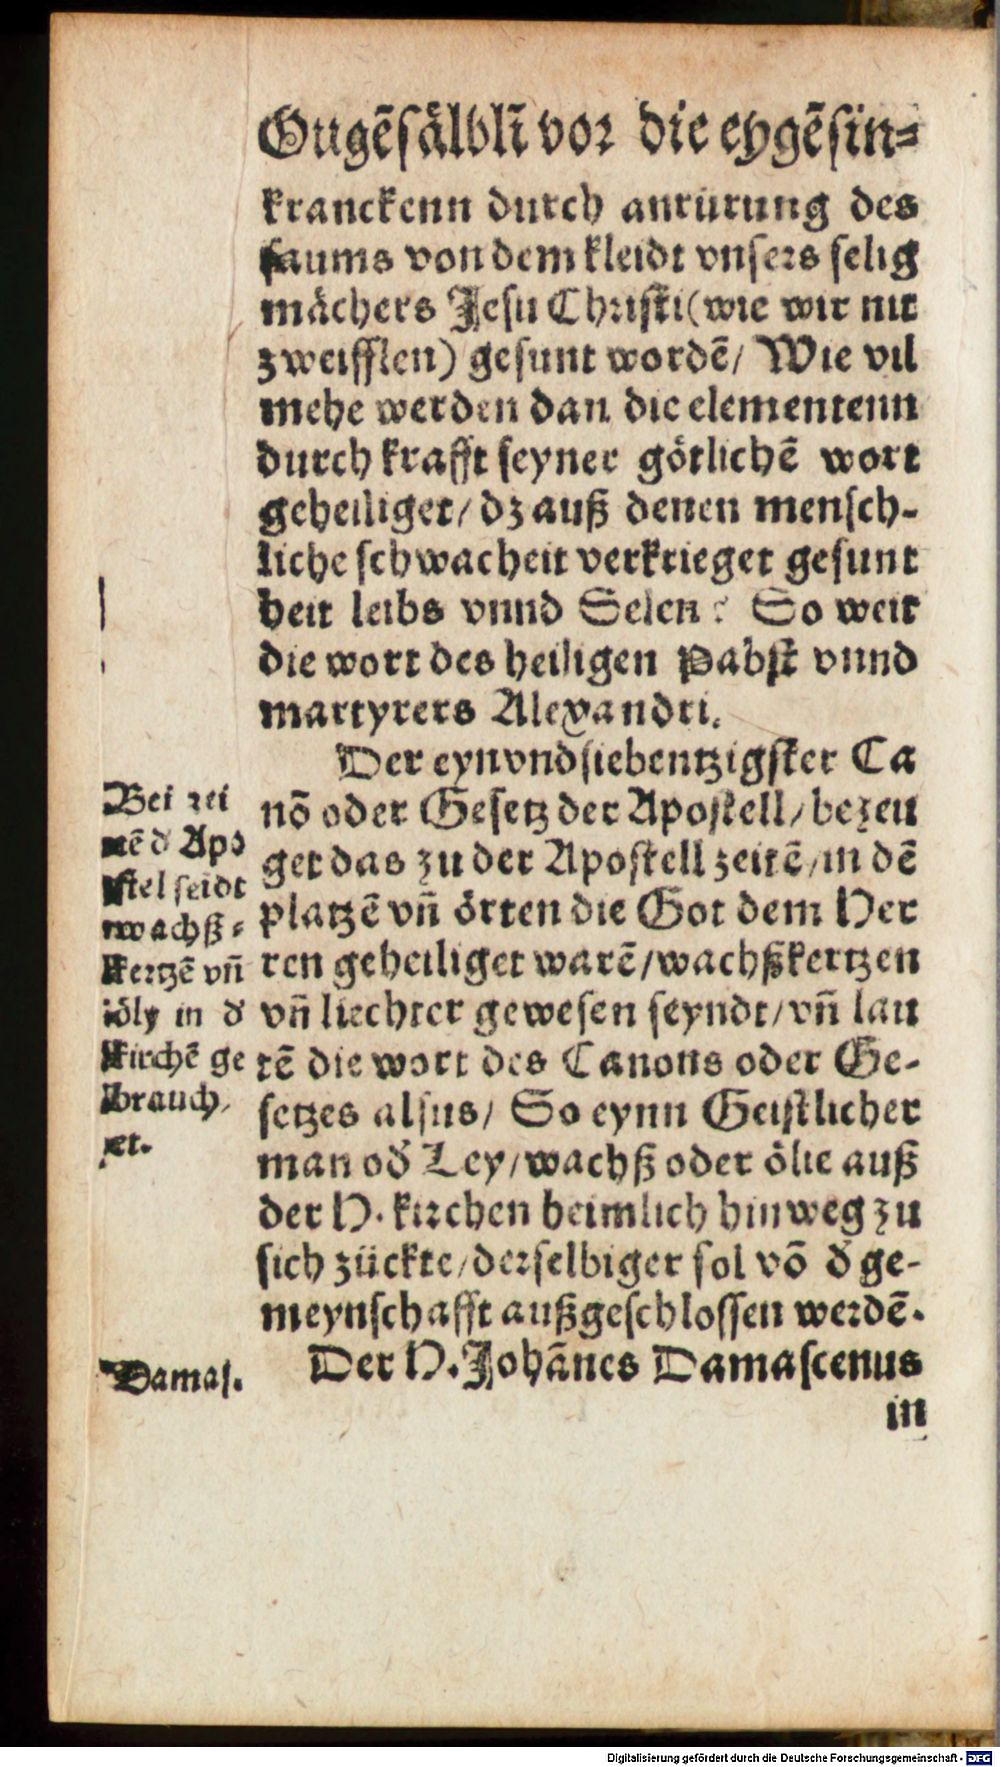 Gugẽsälblĩ vor die eygẽsin⸗
kranckenn durch anrürung des
saums von dem kleidt vnsers selig
mächers Jesu Christi (wie wir nit
zweifflen) gesunt wordẽ/ Wie vil
mehe werden dan die elementenn
durch krafft seyner götlichẽ wort
geheiliget/ dz auß denen mensch-
liche schwacheit verkrieget gesunt
heit leibs vnnd Selen? So weit
die wort des heiligen Pabst vnnd
martyrers Alexandri.
Der eynvndsiebentzigster Ca
nõ oder Gesetz der Apostell/ bezeu
get das zu der Apostell zeitẽ/ in dẽ
platzẽ vñ örten die Got dem Her
ren geheiliget warẽ/ wachßkertzen
vñ liechter gewesen seyndt/ vñ lau
tẽ die wort des Canons oder Ge-
setzes alsus/ So eynn Geistlicher
man oð Ley/ wachß oder ölie auß
der H. kirchen heimlich hinweg zu
sich zückte/ derselbiger sol võ ð ge-
meynschafft außgeschlossen werdẽ.
Der H. Johãnes Damascenus
in
Bei zei
tẽ ð Apo
stel seidt
wachß⸗
kertzẽ vñ
öly in ð
Kirchẽ ge
brauch,
et.
Damas.
Digitalisierung gefördert durch die Deutsche Forschungsgemeinschaft - DFG